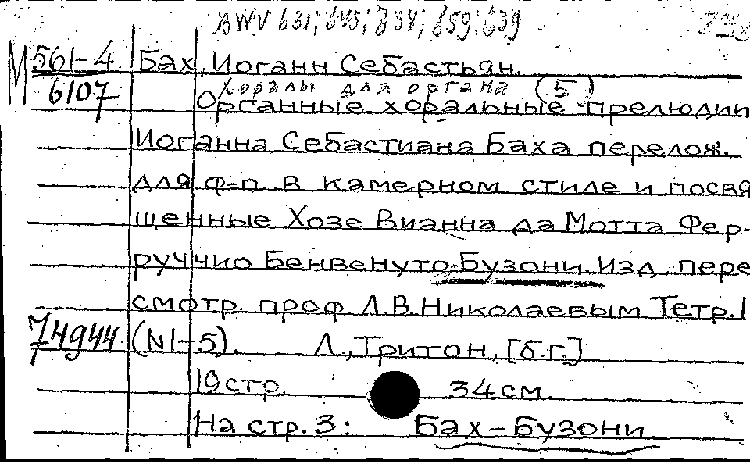 BWV 631; 645; 734; 659; 639
М 561-4 Бах, Иоганн Себастьян.
Хоралы для органа (5)
6107 Органные хоральные прелюдии
Иоганна Себастиана Баха перелож.
для ф-п в камерном стиле и посвя
щенные Хозе Вианна да Мотта Фер-
руччио Бенвенуто Бузони. Изд. пере
смотр проф Л.В.Николаевым Тетр.1
74944 (N1-5). Л., Тритон, [б.г.]
19стр. 34см.
На стр. 3: Бах-Бузони